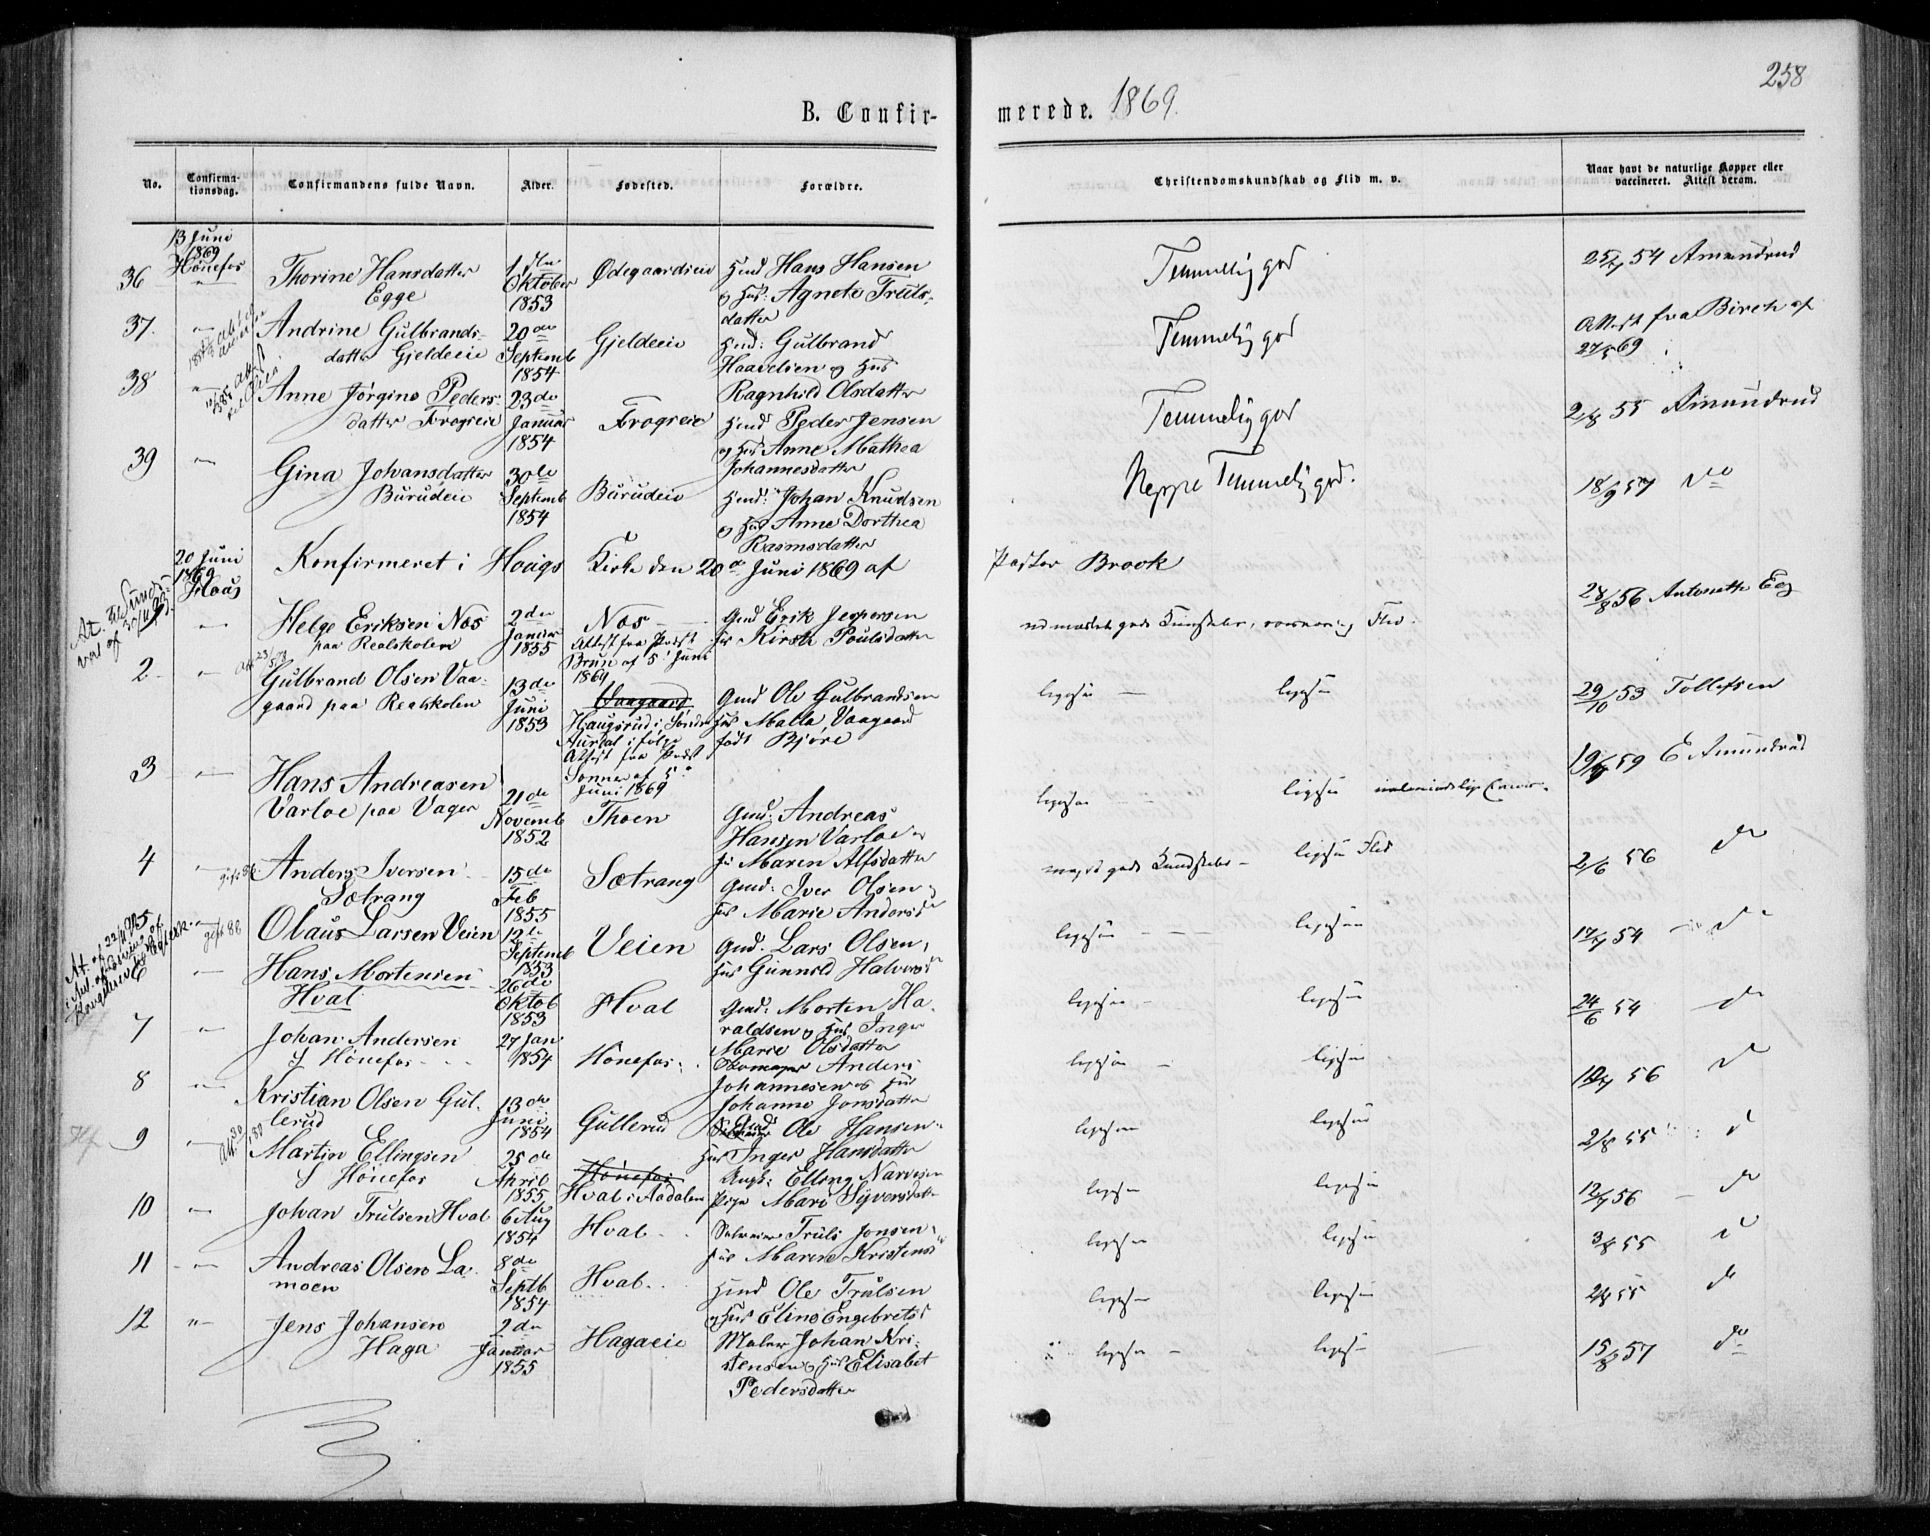 258
B. Confirmerede. 1869.
No. Confirmationsdag. Confirmandens fulde Navn. Alder. Fødested. Forældre. Christendomskundskab og Flid m. v. Naar havt de naturlige Kopper eller vaccineret. Attest derom.
13 Juni
1869
Hönefos
36 Thorine Hansdatter
Egge
1ste
Oktober
1853
Ødegaardseie
Hmd Hans Hansen
og Hus: Agnete Truls-
datter
Temmelig god
25/7 54 Amundrud
37. Andrine Gulbrands-
datter Gjeldeeie
20de
Septemb
1854
Gjeldeeie
Hmd: Gulbrand
Haavelsen og Hus
Ragnhild Olsdatter
Temmelig god
Attest fra Birch af
27/5 69
38 Anne Jörgine Peders-
datter Frogseie
23de
Januar
1854
Frogseie
Hmd Peder Jensen
og Hus Anne Mathea
Johannesdatter
Temmelig god
2/8 55 Amundrud
39 Gina Johansdatter
Burudeie
30te
Septemb
1854
Burudeie
Hmd: Johan Knudsen
og Hus Anne Dorthea
Rasmsdatter
Neppe Temmelig god.
18/9 57 do
20 Juni
1869
Houg
Konfirmeret i Hougs Kirke den 20de Juni 1869 af Pastor Brock
Helge Eriksen Næs
paa Realskolen
2den
Januar
1855
Næs
Attest fra Præst
Brun af 5' Juni
1869
Gmd Erik Jespersen
Hus Kirsti Poulsdatter
udmærket gode Kundskaber, Flid.
28/8 56 Antonette Eeg
2 Gulbrand Olsen Vaa-
gaard paa Realskolen
13de
Juni
1853
Vaagaard
Haugsrud i Søndre
Aurdal i følge
Attest fra Præst
Sonner af 5te
Juni 1869
Gmd Ole Gulbrandsen
Hus Malla Vaagaard
født Bjøre
ligesaa ligesaa
29/10 53 Tollefsen
3 Hans Andreasen
Varloe paa Vager
21de
Novemb
1852
Thoen
Gmd: Andreas
Hansen Varloe og
Hus Maren Alfsdatter
ligesaa ligesaa
19/9 59 E Amundrud
4 Anders Iversen
Sætrang
15de
Feb
1855
Sætrang
Gmd: Iver Olsen
Hus Marie Andersd
meget gode Kundskaber - ligesaa Flid
2/6 56 do
Olaus Larsen Veien
12te
Septemb
1853
Veien
Gmd. Lars Olsen,
Hus Gunnild Halvorsd
ligesaa ligesaa
17/7 54 do
Hans Mortensen
Hval
26de
Oktob
1853
Hval
Gmd: Morten Ha-
raldsen og Hus Inger
Marie Olsdatter
ligesaa ligesaa
24/6 54 do
7 Johan Andersen
Hönefos
27 Jan
1854
Hönefos
Skomager Anders
Johannesen og Hus
Johanne Jonsdatter
ligesaa ligesaa
56 do
8 Kristian Olsen Gul-
lerud
13de
Juni
1854
Gullerud
Gmd Ole Hansen
Hus Inger Hansdatter
ligesaa ligesaa
2/8 55 do
9 Martin Ellingsen
Hönefos
25de
April
1855
Hönefos
Hval i Aadalen
Ungk: Elling Narvesen
Pige Mari Syversdatter
ligesaa ligesaa
12/7 56 do
10 Johan Trulsen Hval
6 Aug
1854
Hval
Truls Jonsen
Hus Maren Kristensd
ligesaa ligesaa
3/8 55 do
11 Andreas Olsen La-
moen
8de
Septb
1854
Hval
Hmd Ole Trulsen
og Hus Eline Engebretsd
ligesaa ligesaa
2/8 55 do
12 Jens Johansen
Haga
2den
Januar
1855
Hagaeie
Maler Johan Kri-
stensen og Hus Elisabet
Pedersdatter
ligesaa ligesaa
15/8 57 do